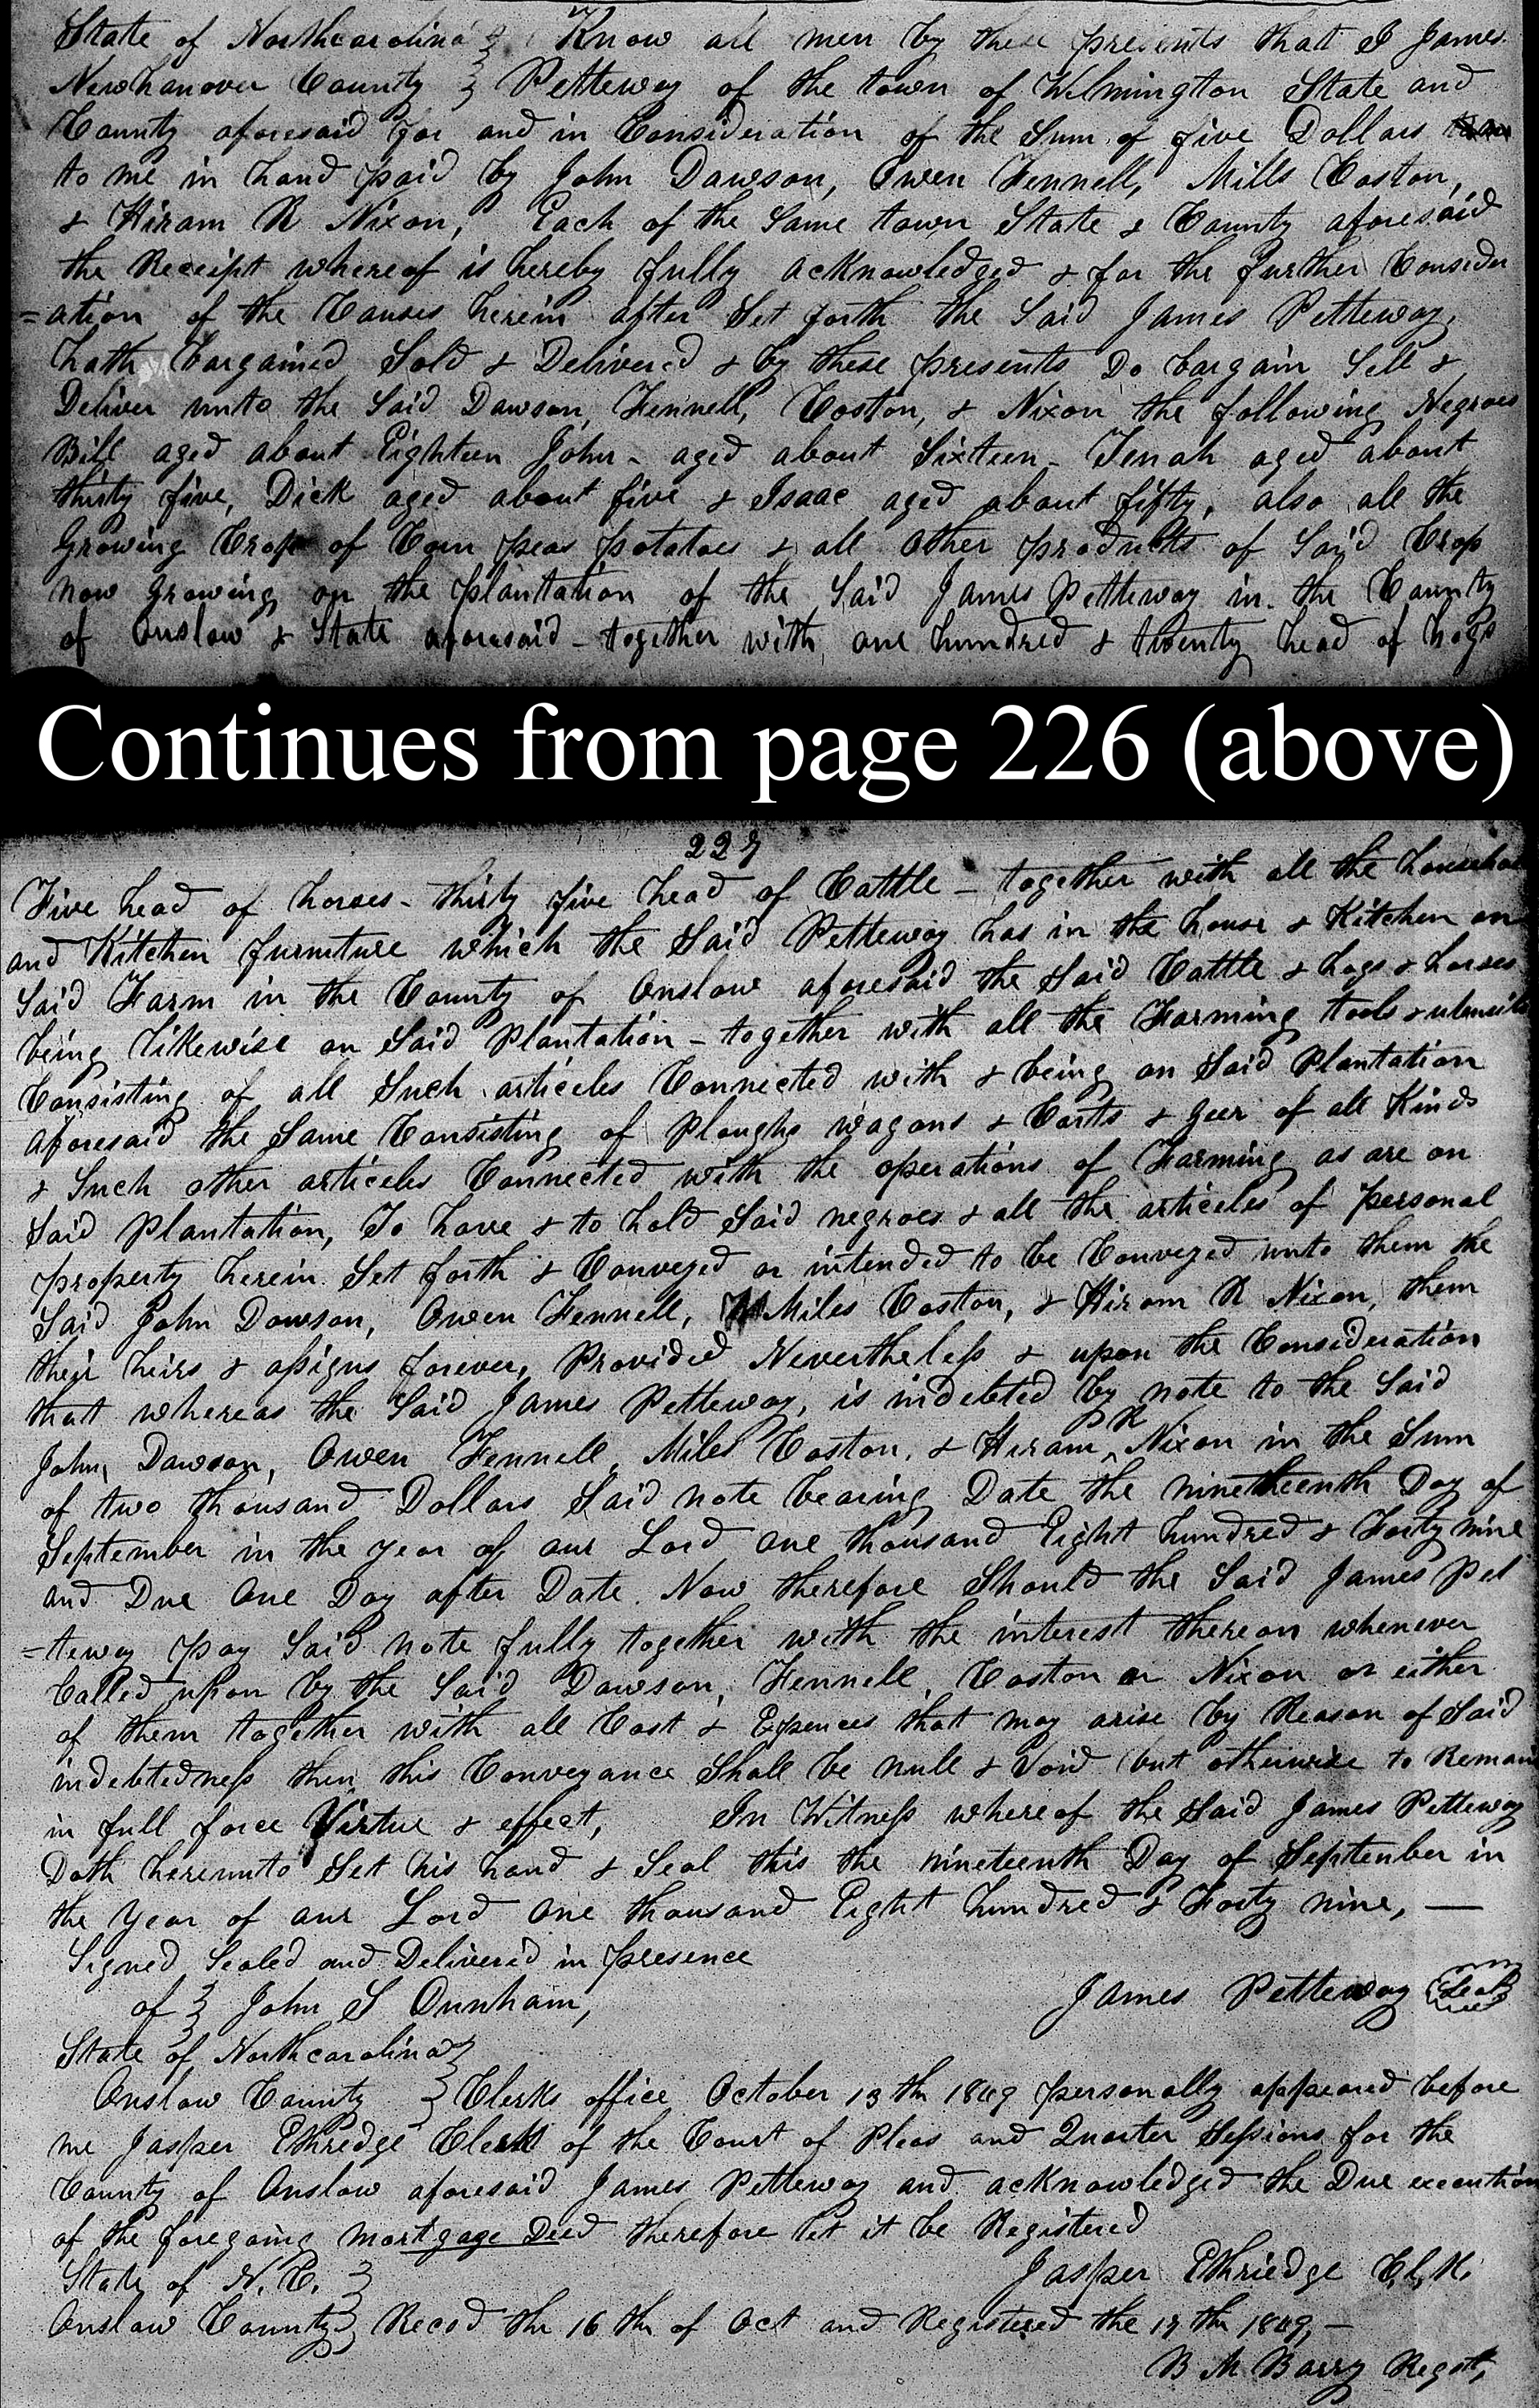 State of Northcarolina } Know all men by these presents that I James
Newhanover County } Petteway of the town of Wilmington State and
County aforesaid for and in Consideration of the Sum of five Dollars
to me in hand paid by John Dawson, Owen Fennell, Mills Coston,
& Hiram R Nixon, Each of the Same town State & County aforesaid
the Receipt whereof is hereby fully acknowledged & for the further Consider
=ation of the Causes herein after Set forth the Said James Petteway,
hath bargained Sold & Delivered & by these presents Do bargain Sell &
Deliver unto the Said Dawson, Fennell, Coston, & Nixon the following Negroes
Bill aged about Eighteen John - aged about Sixteen - Tenah aged about
thirty five, Dick aged about five & Isaac aged about fifty, also all the
Growing Crop of Corn peas potatoes & all other products of Said Crop
now growing on the plantation of the Said James Petteway in the County
of Onslow & State aforesaid - together with one hundred & twenty head of hogs
Continues from page 226 (above)
227
Five head of horses - thirty five head of Cattle - together with all the household
and Kitchen furniture which the Said Petteway has in the house & Kitchen on
Said Farm in the County of Onslow aforesaid the Said Cattle & hogs & horses
being likewise on Said Plantation - together with all the Farming tools & utensils
Consisting of all Such articeles Connected with & being on Said Plantation
aforesaid the Same Consisting of Ploughs wagons & Carts & Geer of all Kinds
& Such other articeles Connected with the operations of Farming as are on
Said Plantation, To have & to hold Said negroes & all the articeles of personal
property herein Set forth & Conveyed or intended to be Conveyed unto them the
Said John Dawson, Owen Fennell, Miles Coston, & Hiram R Nixon, them
their heirs & assigns forever, Provided Nevertheless & upon the Consideration
that whereas the Said James Petteway, is indebted by note to the Said
John Dawson, Owen Fennell, Miles Coston, & Hiram R Nixon in the Sum
of two thousand Dollars Said note bearing Date the ninetheenth Day of
September in the year of our Lord one thousand Eight hundred & Forty nine
and Due One Day after Date. Now therefore Should the Said James Pet
=teway pay Said note fully together with the interest thereon whenever
Called upon by the Said Dawson, Fennell, Coston or Nixon or either
of them together with all Cost & Expences that may arise by Reason of Said
indebtedness then this Conveyance Shall be null & Void but otherwise to Remain
in full force Virtue & effect, In Witness whereof the Said James Petteway
Doth hereunto Set his hand & Seal this the nineteenth Day of September in
the Year of our Lord One thousand Eight hundred & Forty nine, —
Signed Sealed and Delivered in presence
of } John S Dunham, James Petteway Seal
State of Northcarolina }
Onslow County } Clerks office October 13th 1849 personally appeared before
me Jasper Ethredge Clerk of the Court of Pleas and Quarter Sessions for the
County of Onslow aforesaid James Petteway and acknowledged the Due execution
of the foregoing mortgage Deed therefore let it be Registered
Jasper Ethriedge Clk.
State of N.C. }
Onslow County } Recd the 16th of Oct and Registered the 17th 1849, —
B M Barry Regst,